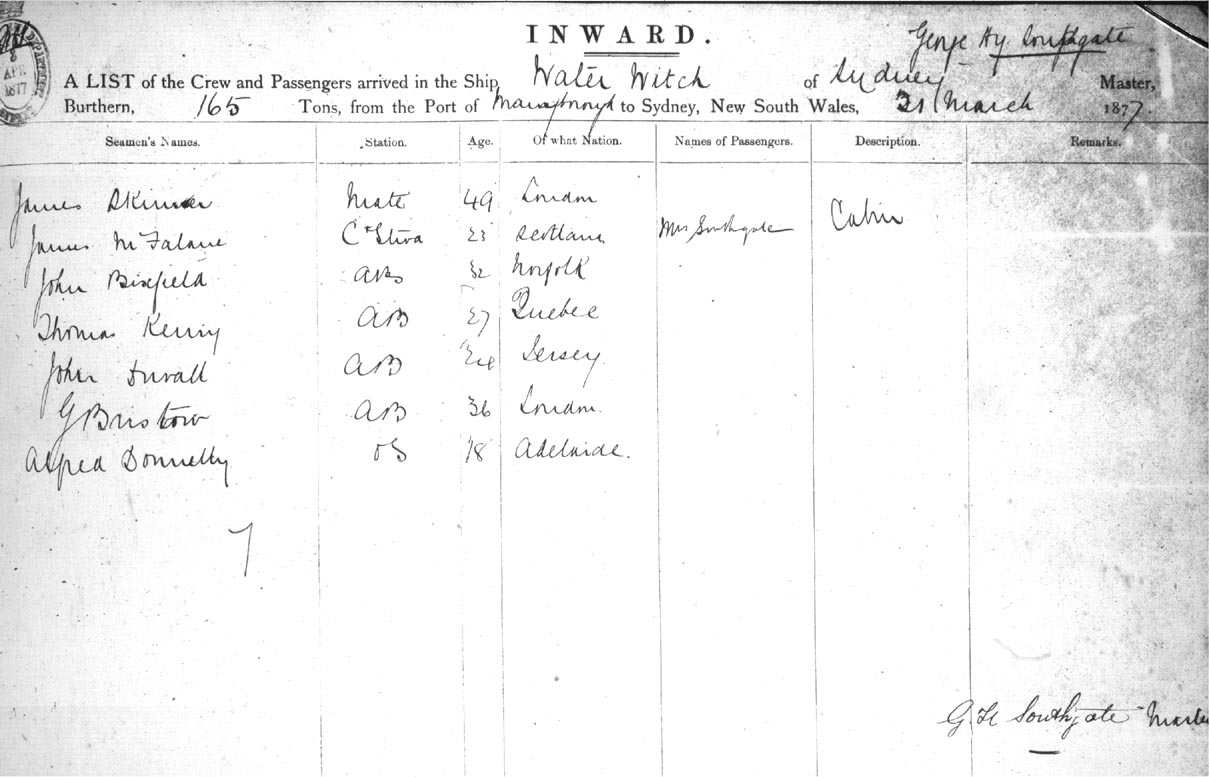 INWARD.
George Hy. Southgate
A LIST of the Crew and Passengers arrived in the Ship Water Witch of Sydney Master,
Burthern, 165 Tons, from the Port of to Sydney, New South Wales, 31 March 1877
Seamen's Names. Station. Age. Of what Nation. Names of Passengers. Description. Remarks.
James Skinner Mate 49 London
James McFalane 23 Scotland Mrs Southgate Cabin
John 32 Norfolk
Thomas AB 27 Quebec
John Duvall AB Jersey
G Bristow AB 36 London
Alfred Donnelly OS 18 Adelaide.
7
G H Southgate Master